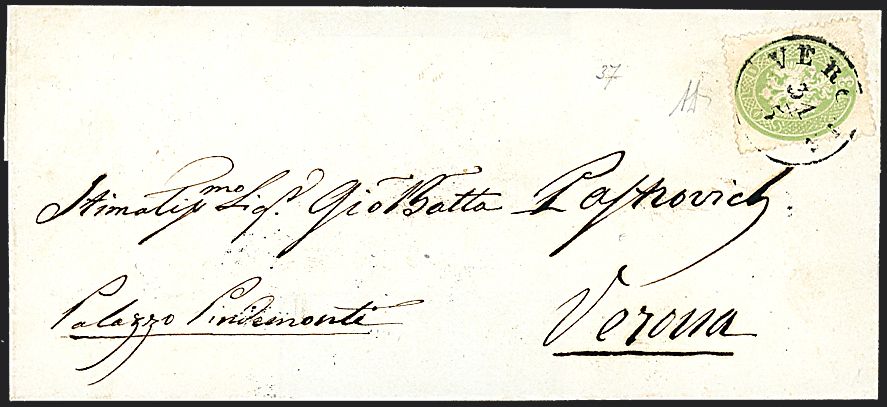 VERONA
37
Stimatissmo Sigr. Gio Batta Pastrovich.
Palazzo Pindemonti
Verona